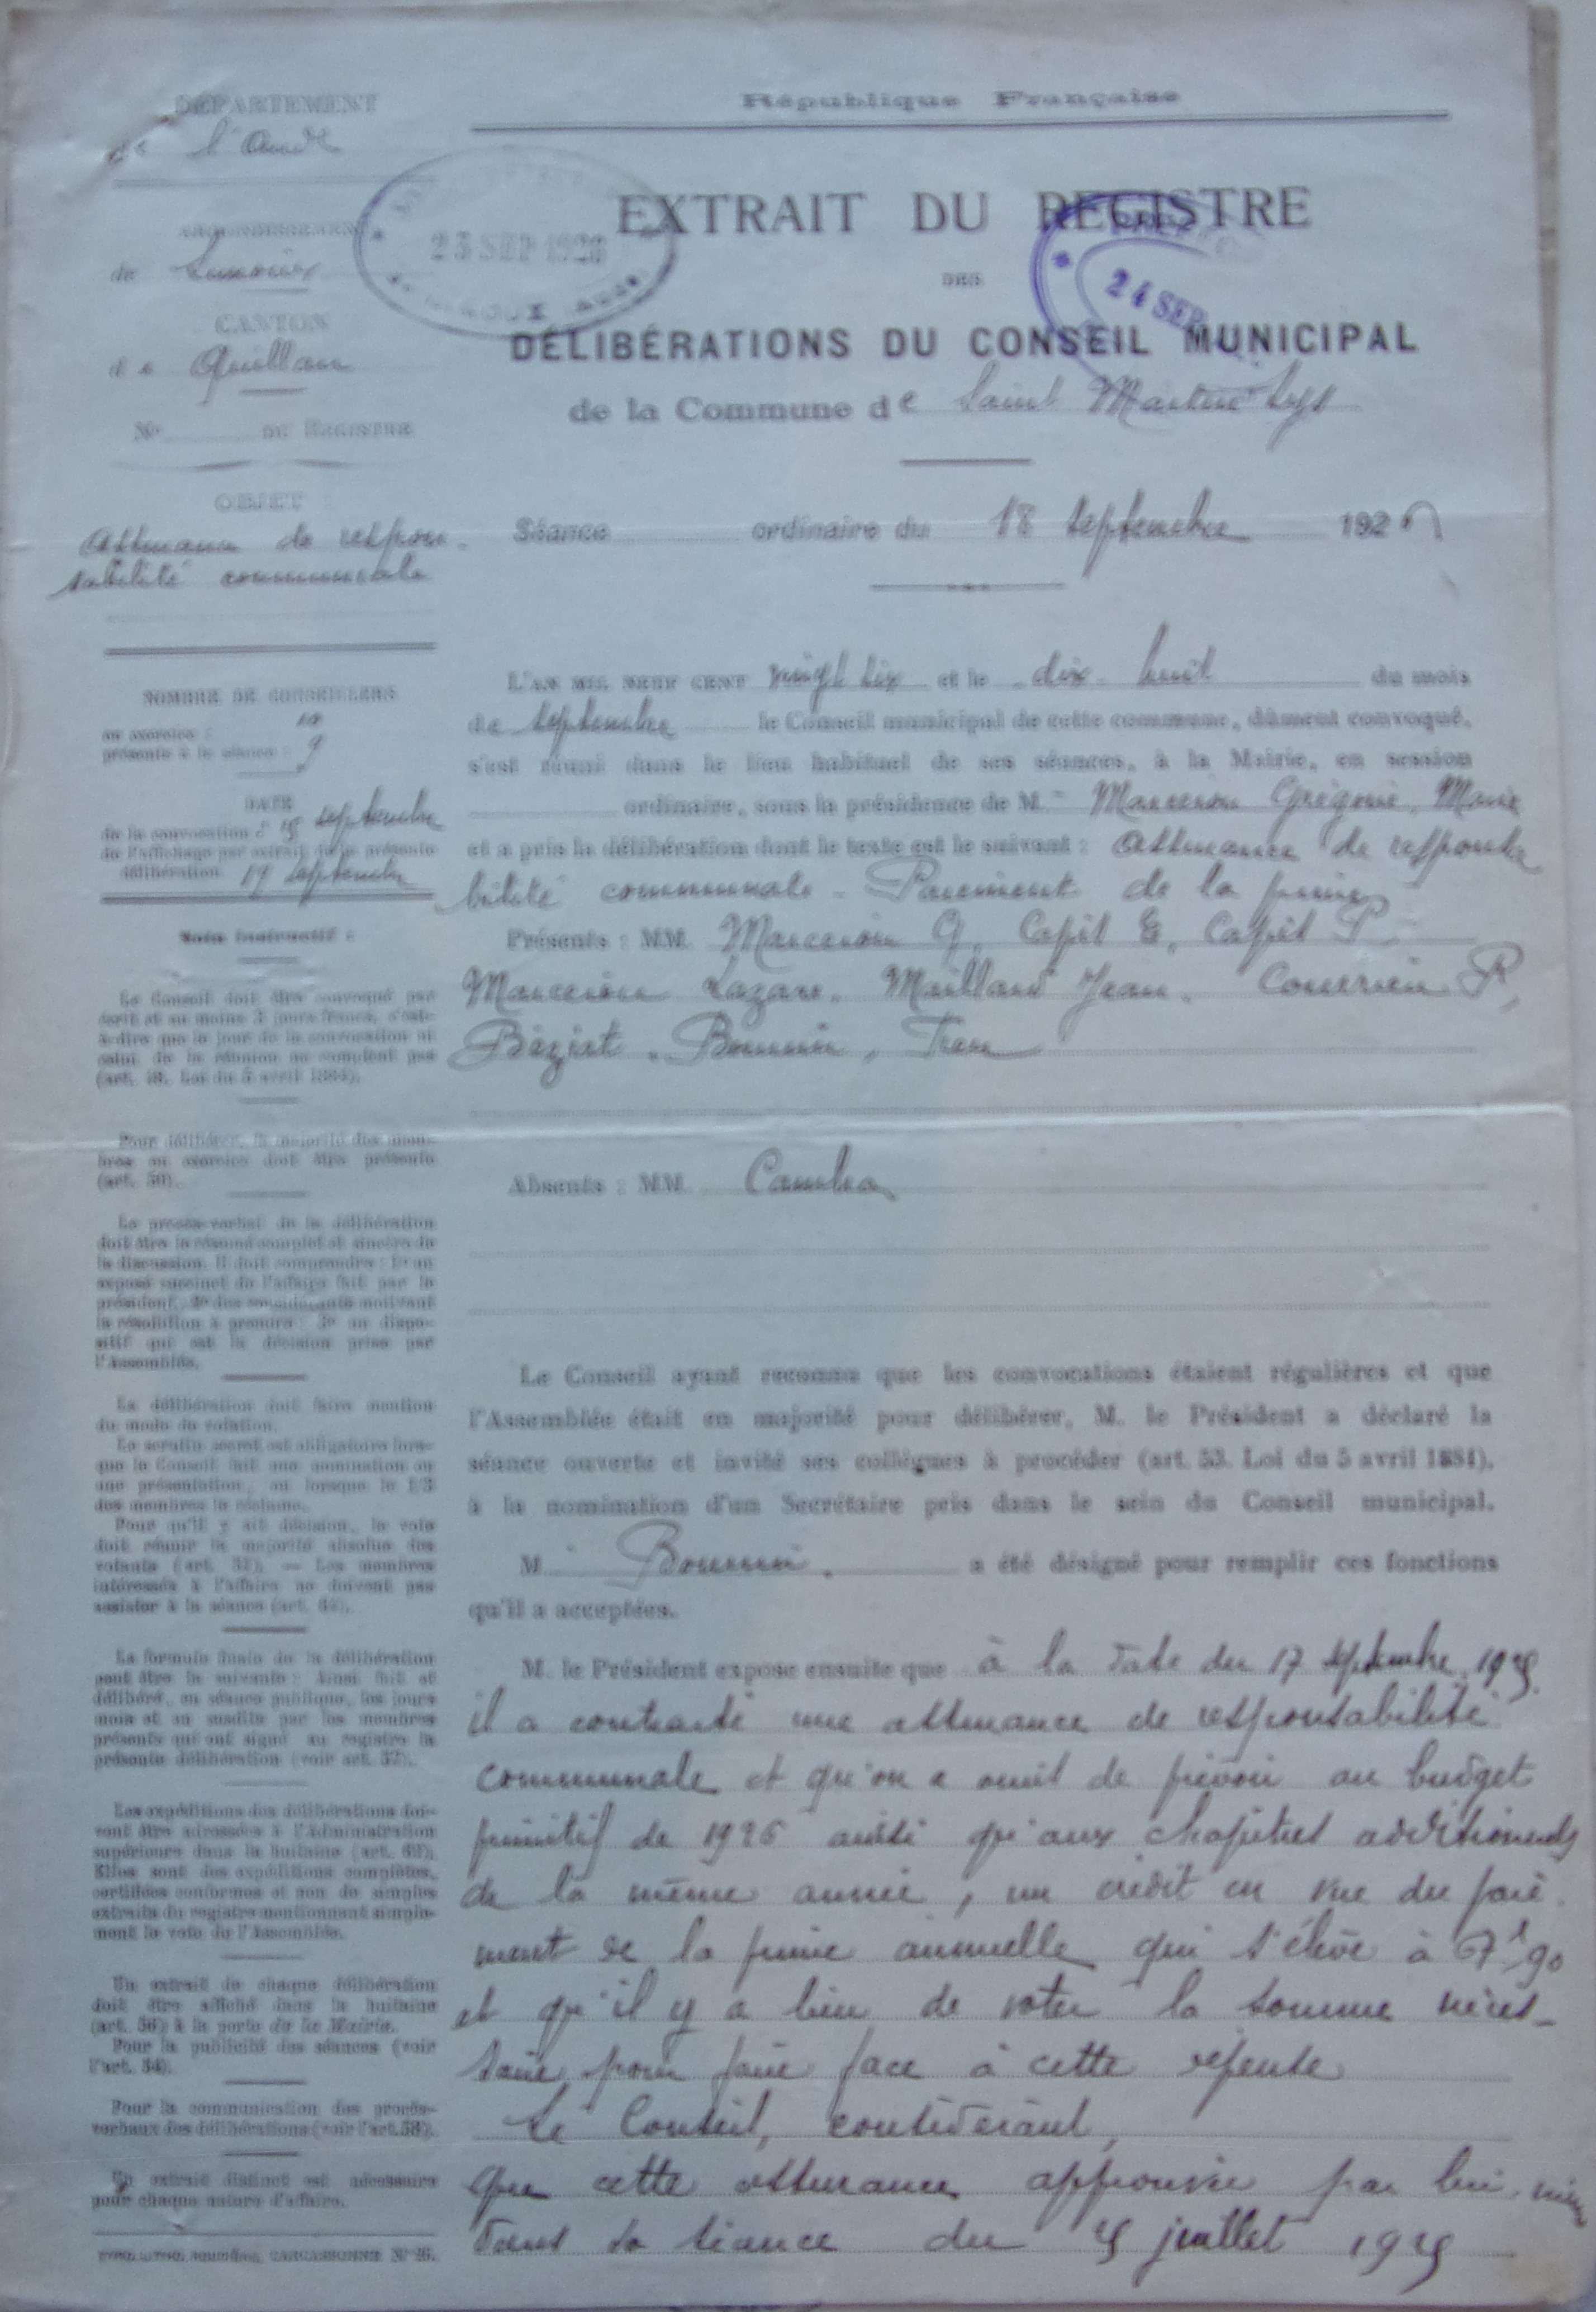 DÉPARTEMENT
de l'Aude
ARRONDISSEMENT
de Limoux
CANTON
de Quillan
N° DU REGISTRE
OBJET :
Assurance de respon-
sabilité communale
NOMBRE DE CONSEILLERS
en exercice : 10
présents à la séance : 9
DATE
de la convocation : 15 septembre
de l'affichage par extrait de la présente
délibération 19 septembre
Nota instructif :
Le Conseil doit être convoqué par
écrit et au moins 3 jours francs, c'est-
à-dire que le jour de la convocation ni
celui de la réunion ne comptent pas
(art. 48. Loi du 5 avril 1884).
Pour délibérer, la majorité des mem-
bres en exercice doit être présente
(art. 50).
Le procès-verbal de la délibération
doit être le résumé complet et sincère de
la discussion. Il doit comprendre : 1° un
exposé succinct de l'affaire fait par le
président, 2° des considérants motivant
la résolution à prendre ; 3° un dispo-
sitif qui est la décision prise par
l'Assemblée.
La délibération doit faire mention
du mode de votation.
Le scrutin secret est obligatoire lors-
que le Conseil fait une nomination ou
une présentation, ou lorsque le 1/3
des membres le réclame.
Pour qu'il y ait décision, le vote
doit réunir la majorité absolue des
votants (art. 51). — Les membres
intéressés à l'affaire ne doivent pas
assister à la séance (art. 64).
La formule finale de la délibération
peut être la suivante : Ainsi fait et
délibéré, en séance publique, les jours
mois et an susdits par les membres
présents qui ont signé au registre la
présente délibération (voir art. 57).
Les expéditions des délibérations doi-
vent être adressées à l'Administration
supérieure dans la huitaine (art. 62).
Elles sont des expéditions complètes,
certifiées conformes et non de simples
extraits du registre mentionnant simple-
ment le vote de l'Assemblée.
Un extrait de chaque délibération
doit être affiché dans la huitaine
(art. 56) à la porte de la Mairie.
Pour la publicité des séances (voir
l'art. 54).
Pour la communication des procès-
verbaux des délibérations (voir l'art. 58).
Un extrait distinct est nécessaire
pour chaque nature d'affaire.
CARCASSONNE N° 16.
République Française
23 SEP 1926
LIMOUX (AUDE)
24 SEP
EXTRAIT DU REGISTRE
DES
DÉLIBÉRATIONS DU CONSEIL MUNICIPAL
de la Commune de Saint Martin Lys
Séance ordinaire du 18 septembre 1926
L'AN MIL NEUF CENT vingt six et le dix huit du mois
de septembre le Conseil municipal de cette commune, dûment convoqué,
s'est réuni dans le lieu habituel de ses séances, à la Mairie, en session
ordinaire, sous la présidence de M. Marcerou Grégoire, Maire
et a pris la délibération dont le texte est le suivant : Assurance de responsa
bilité communale - Paiement de la prime
Présents : MM. Marcerou G, Capit E, Capit P,
Marcerou Lazare, Maillard Jean,
Béziat,
Absents : MM.
Le Conseil ayant reconnu que les convocations étaient régulières et que
l'Assemblée était en majorité pour délibérer, M. le Président a déclaré la
séance ouverte et invité ses collègues à procéder (art. 53. Loi du 5 avril 1884),
à la nomination d'un Secrétaire pris dans le sein du Conseil municipal.
M. a été désigné pour remplir ces fonctions
qu'il a acceptées.
M. le Président expose ensuite que à la date du 17 septembre 1925
il a contracté une assurance de responsabilité
communale et qu'on a omis de prévoir au budget
primitif de 1926 ainsi qu'aux chapitres additionnels
de la même année, un crédit en vue du paie-
ment de la prime annuelle qui s'élève à 67f 90
et qu'il y a lieu de voter la somme néces-
saire pour faire face à cette dépense
Le Conseil, considérant,
que cette assurance approuvée par lui même
dans sa séance du 25 juillet 1925